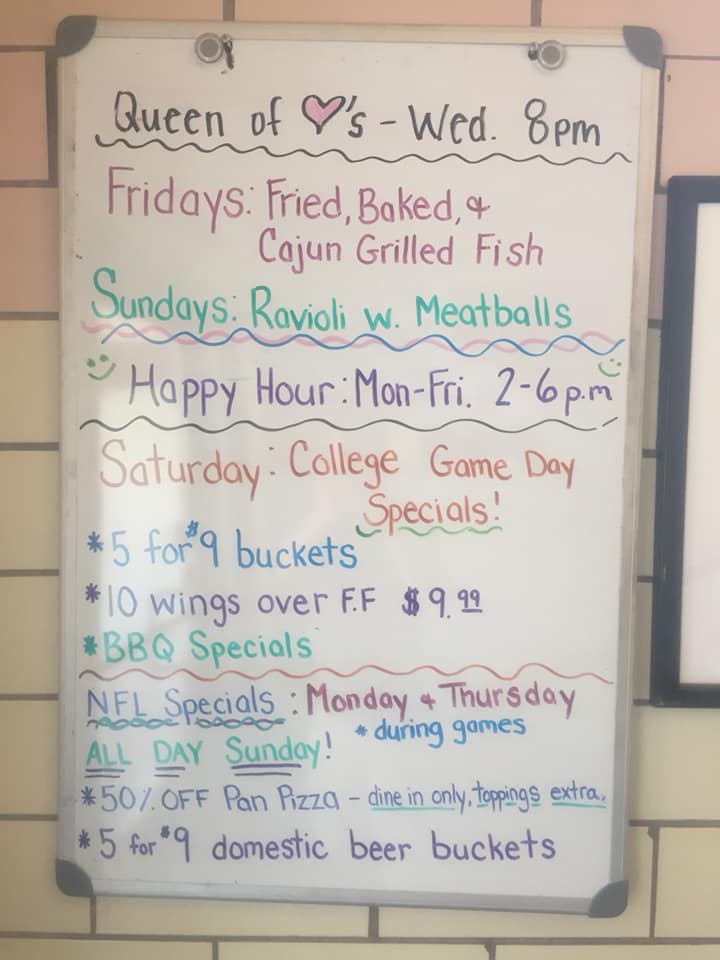 Queen of ♥'s - Wed. 8pm
Fridays: Fried, Baked, &
Cajun Grilled Fish
Sundays: Ravioli w. Meatballs
Happy Hour: Mon-Fri. 2-6 p.m
Saturday: College Game Day
Specials!
*5 for $9 buckets
*10 wings over F.F $9.99
*BBQ Specials
NFL Specials: Monday & Thursday
* during games
ALL DAY Sunday!
*50% OFF Pan Pizza - dine in only, toppings extra.
*5 for $9 domestic beer buckets